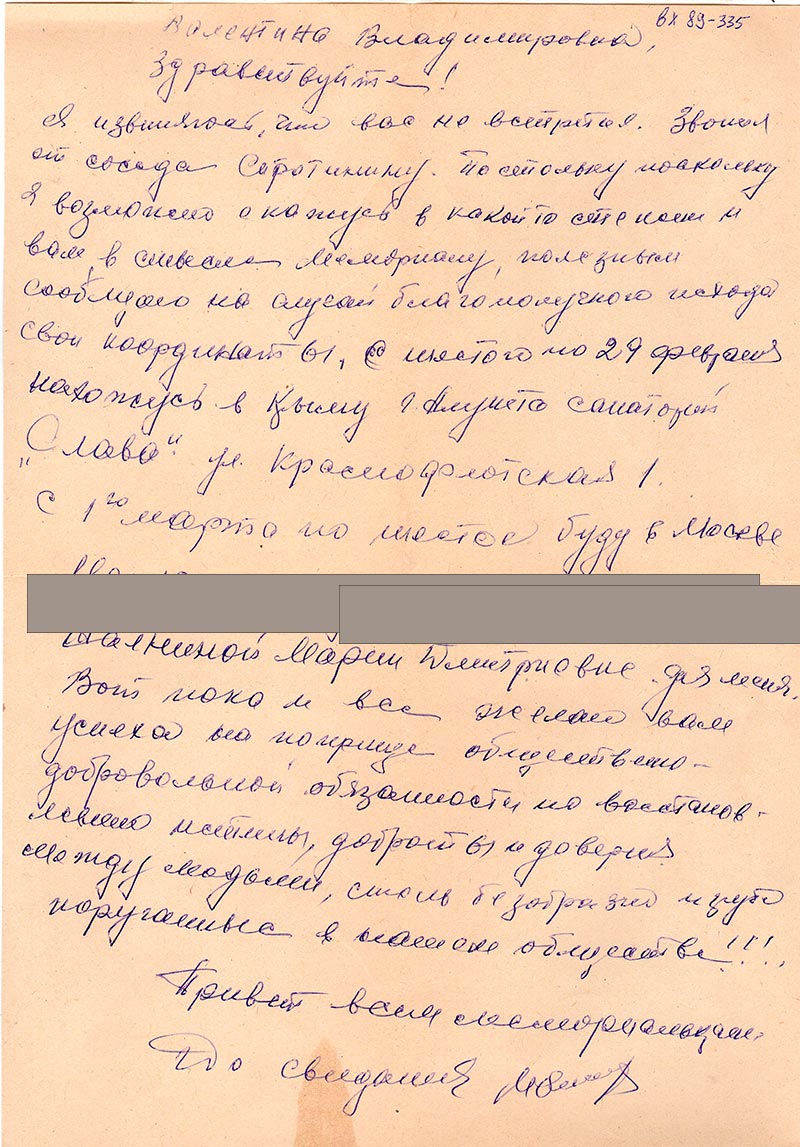 вх 89-335
Валентина Владимировна,
Здравствуйте!
Я извиняюсь, что вас не встретил. Звонил
от соседа Сиротинину. Постольку поскольку
я возможно окажусь в какой то степени и
вам, в смысле Мемориалу, полезным
сообщаю на случай благополучного исхода
свои координаты, с шестого по 29 февраля
нахожусь в Крыму г. Алушта санаторий
„Слава“ ул. Краснофлотская 1.
С 1го марта по шестое буду в Москве
Марии Дмитриевне для меня.
Вот пока и все желаю вам
успеха на поприще общественно-
добровольной обязанности по восстанов-
лению истины, доброты и доверия
между людьми, столь безобразно и грубо
поруганные в нашем обществе!!!,
Привет всем мемориальцам.
До свидания